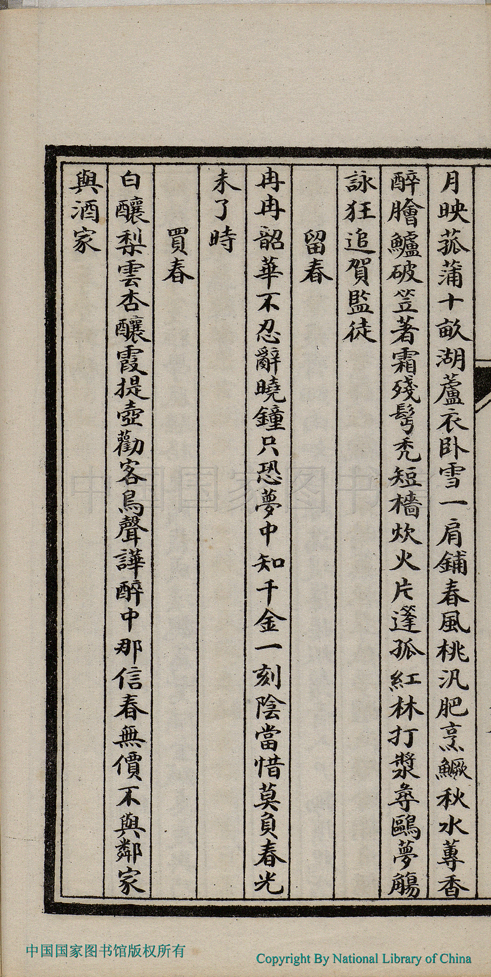 月映菰蒲十畝湖蘆衣卧雪一肩鋪春風桃汎肥烹鱖秋水蓴香
醉膾鱸破笠著霜殘髩禿短檣炊火片篷孤紅林打槳尋鷗夢觴
詠狂追賀監徒
留春
冉冉韶華不忍辭曉鐘只恐夢中知千金一刻陰當惜莫負春光
未了時
買春
白釀梨雲杏釀霞提壺勸客鳥聲譁醉中那信春無價不與鄰家
與酒家
中国国家图书馆
中国国家图书馆版权所有
Copyright By National Library of China